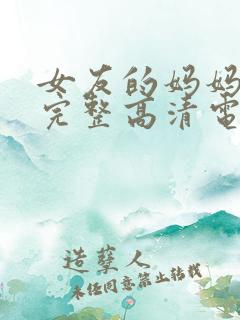 女友的妈妈
完整高清电
造孽人
未经同意禁止转载